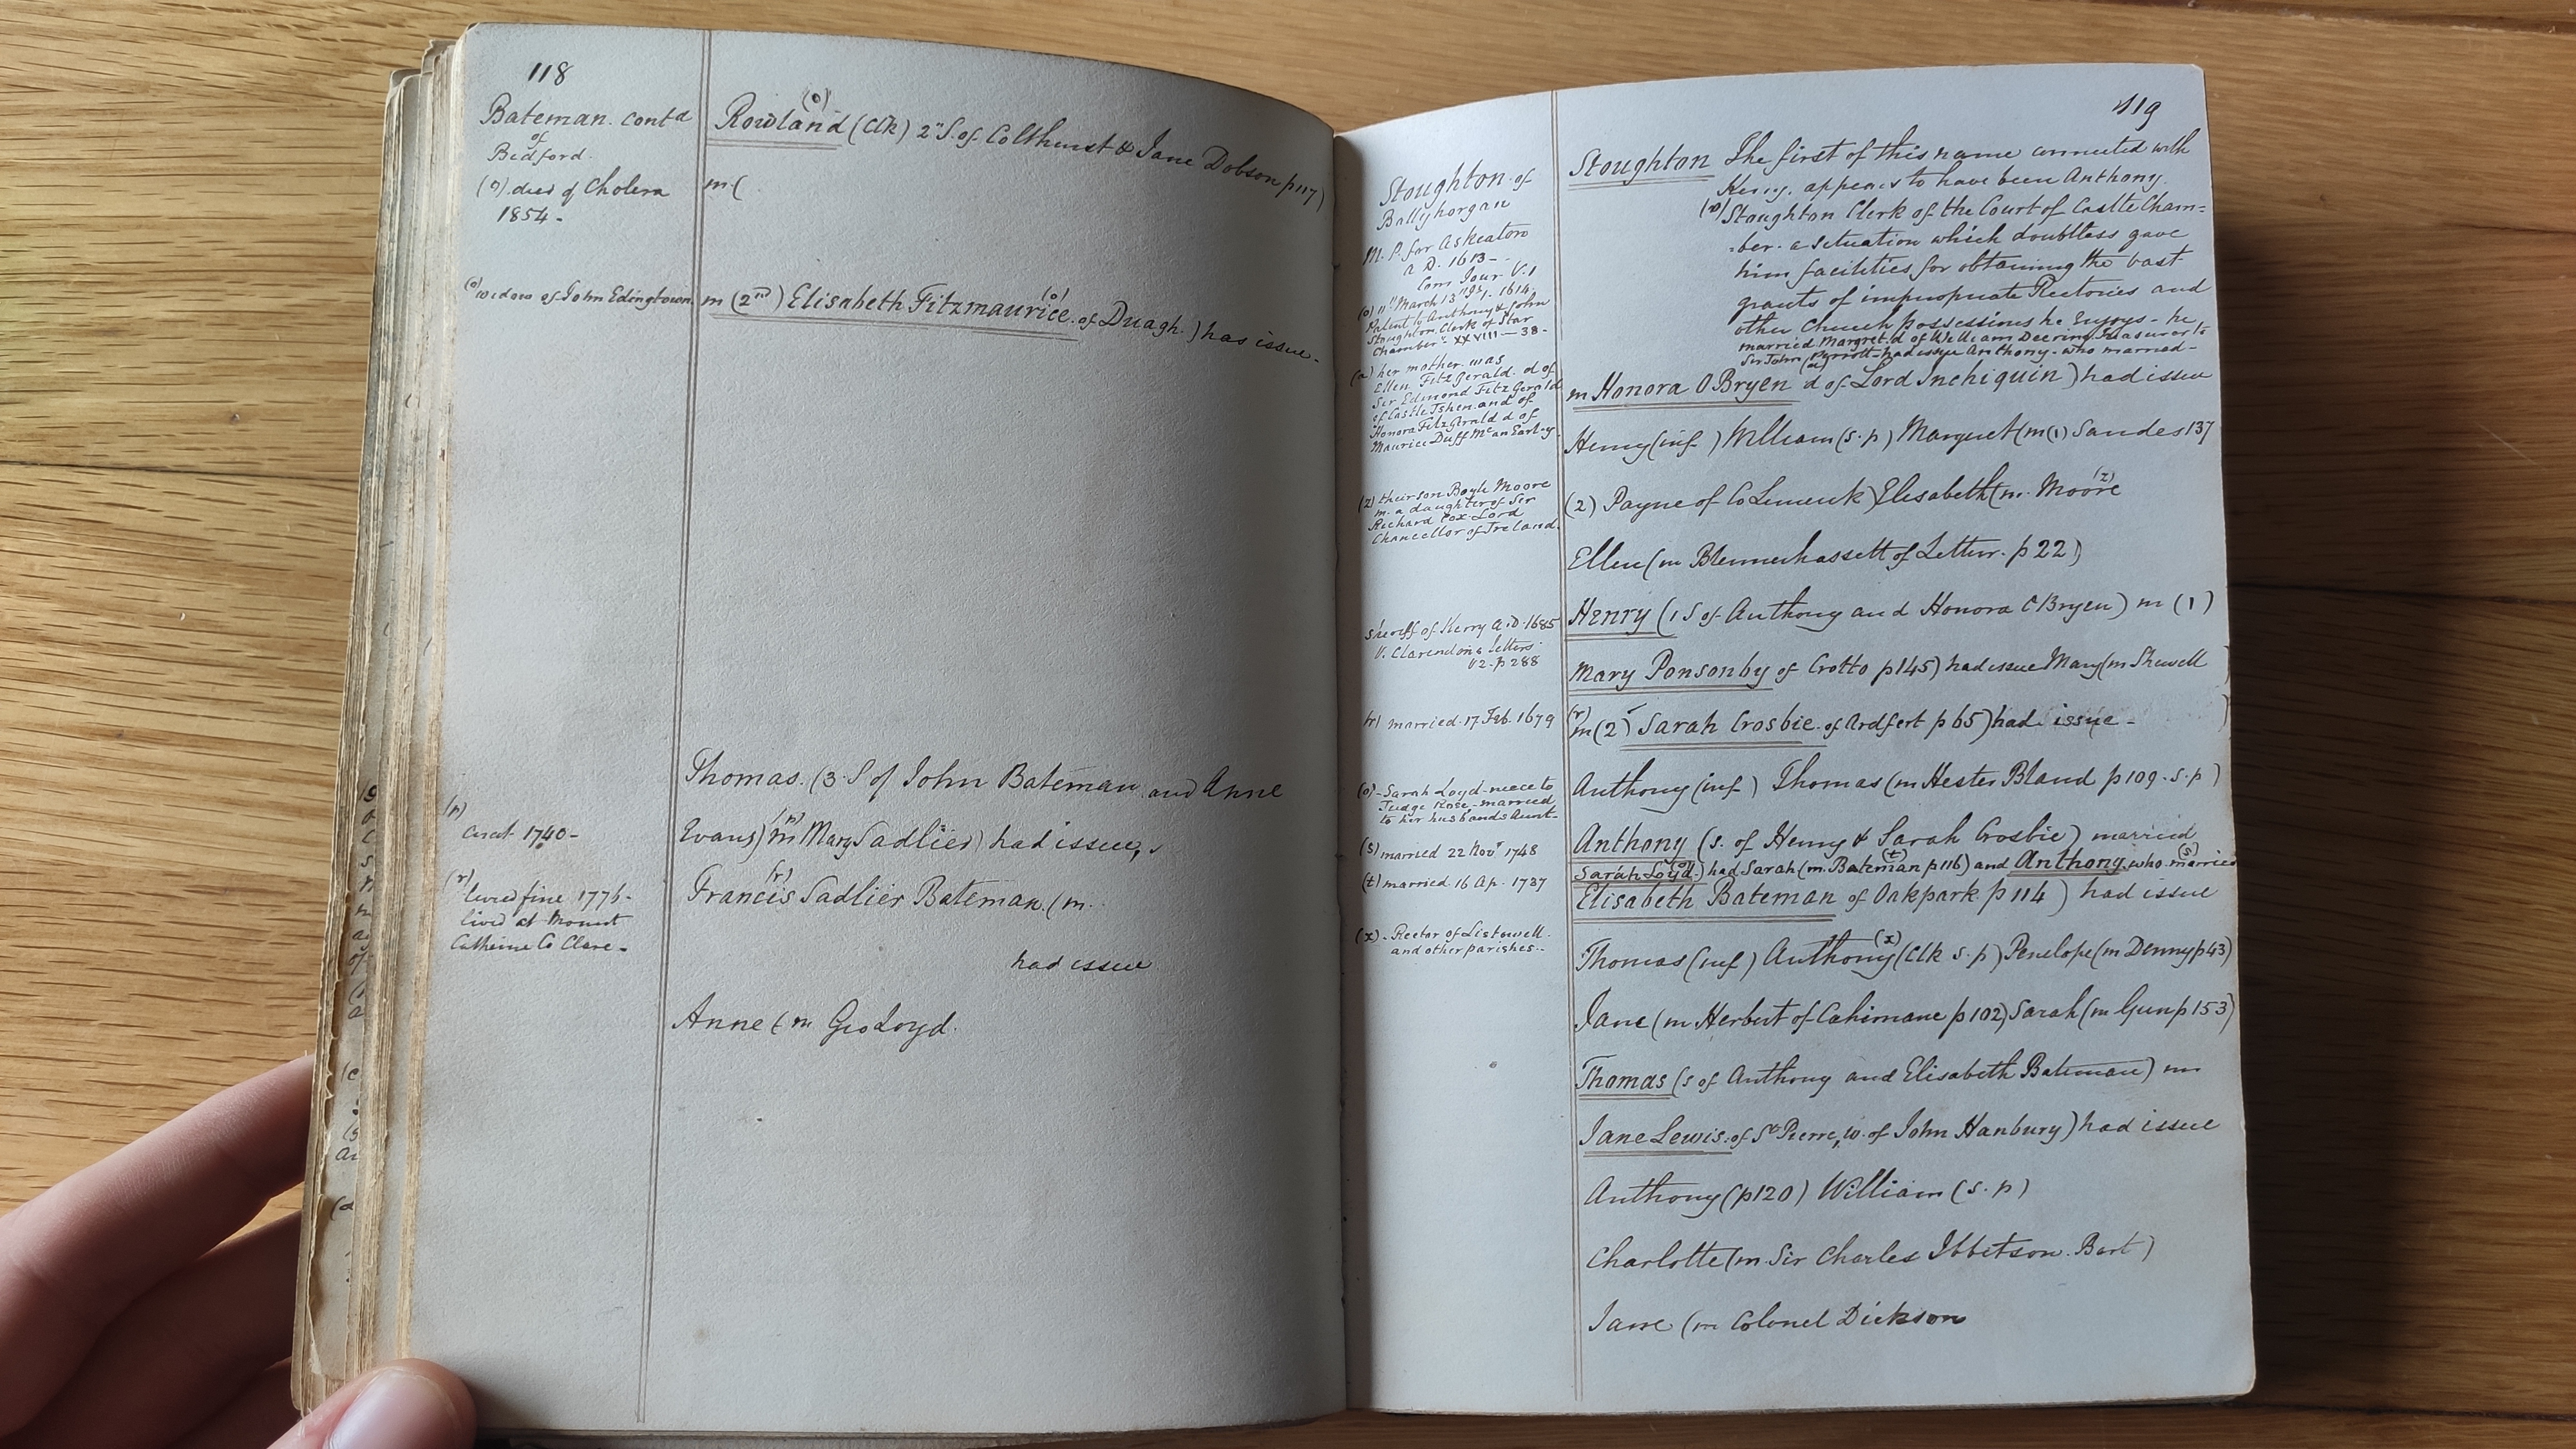 118
Bateman. contd
of
Bedford.
(o) died of Cholera
1854-
(o) widow of John Edingtown
(p)
curat 1740-
(r) levied fine 1776-
lived at Mount
Catherine Co Clare-
(o)
Rowland (Clk) 2" S. of Colthurst & Jane Dobson p117)
m (
m (2nd) Elisabeth Fitzmaurice (o) of Duagh.) has issue-
Thomas. (3. S of John Bateman and Anne
Evans) (p) m Mary Sadlier) had issue,
(r)
Francis Sadlier Bateman (m.
had issue
Anne (m Geo Loyd.
119
Stoughton of
Ballyhorgan
M. P. for Askeaton
A D. 1613-
Com Jour V. 1
(o) 11" March 13" Jas 1. 1614.
Patent to Anthony & John
Stoughton Clerk of Star
Chamber" XXVIII-38-
(a) her mother was
Ellen FitzGerald. d of
Sir Edmond FitzGerald
of Castle Ishen and of
Honora FitzGerald d of
Maurice Duff Mc an Earley
(z) their son Boyle Moore
m. a daughter of Sir
Richard Cox Lord
Chancellor of Ireland.
Sheriff of Kerry A.D. 1685
V. Clarendon's letters
V2. p 288
(r) married. 17 Feb. 1679
(o)-Sarah Loyd-niece to
Judge Rose-married
to her husbands Aunt-
(s) married 22 Nov 1748
(t) married 16 Ap. 1727
(x)-Rector of Listowell
and other parishes-
Stoughton The first of this name connected with
Kerry. appears to have been Anthony.
(o) Stoughton Clerk of the Court of Castle Cham=
=ber. a situation which doubtless gave
him facilities for obtaining the vast
grants of impropriate Rectories and
other Church possessions he Enjoys - he
married Margret. d of William Deering Treasurer to
Sir John Perrott-had issue Anthony-who married-
(a)
m Honora OBryen d of Lord Inchiquin) had issue
Henry (inf ) William (s. p) Margret (m (1) Sandes 137
(2) Payne of Co Limerick) Elisabeth (m. Moore (z)
Ellen (m Blennerhassett of Letter. p 22)
Henry (1 S of Anthony and Honora OBryen) m (1)
Mary Ponsonby of Crotto p145) had issue Mary (m Shewell )
(r) m (2) Sarah Crosbie. of Ardfert p 65) had issue - )
Anthony (inf ) Thomas (m Hester Bland p 109. s. p )
Anthony (s. of Henry & Sarah Crosbie) married
Sarah Loyd (o)) had Sarah (m. Bateman (t) p 116) and Anthony. who married (s)
Elisabeth Bateman of Oakpark p 114) had issue
Thomas (inf ) Anthony (x) (Clk s. p) Penelope (m Denny p43)
Jane (m Herbert of Cahirnane p 102) Sarah (m Gun p 153)
Thomas (s of Anthony and Elisabeth Bateman) m
Jane Lewis. of St Pierre, w. of John Hanbury) had issue
Anthony (p120) William (s. p)
Charlotte (m. Sir Charles Ibbetson. Bart )
Jane (m Colonel Dickson